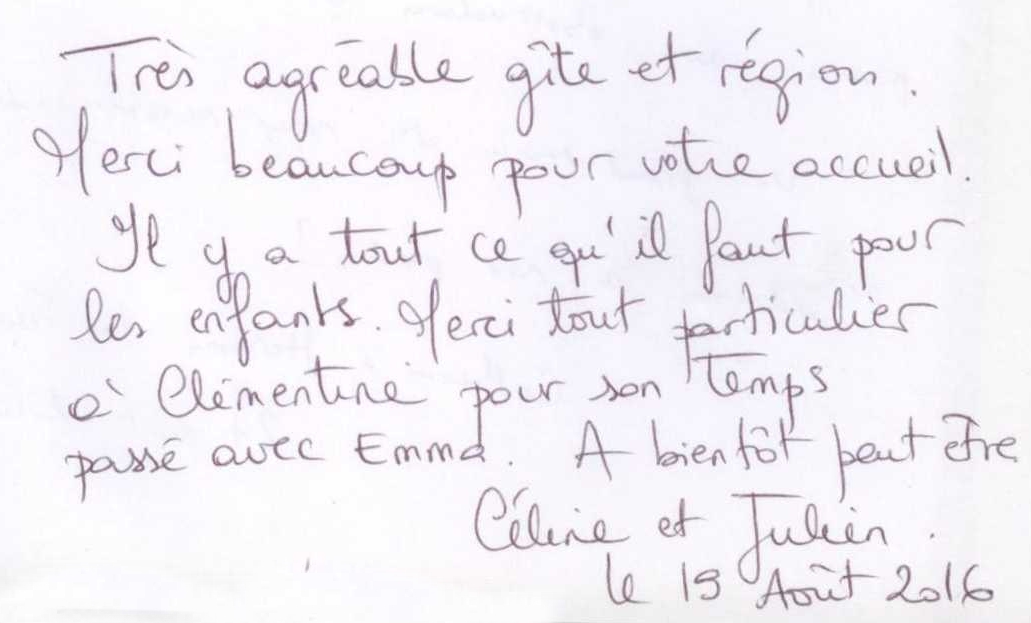 Très agréable gîte et région.
Merci beaucoup pour votre accueil.
Il y a tout ce qu'il faut pour
les enfants. Merci tout particulier
à Clémentine pour son temps
passé avec Emma. A bientôt peut être
Céline et Julien.
le 15 Août 2016